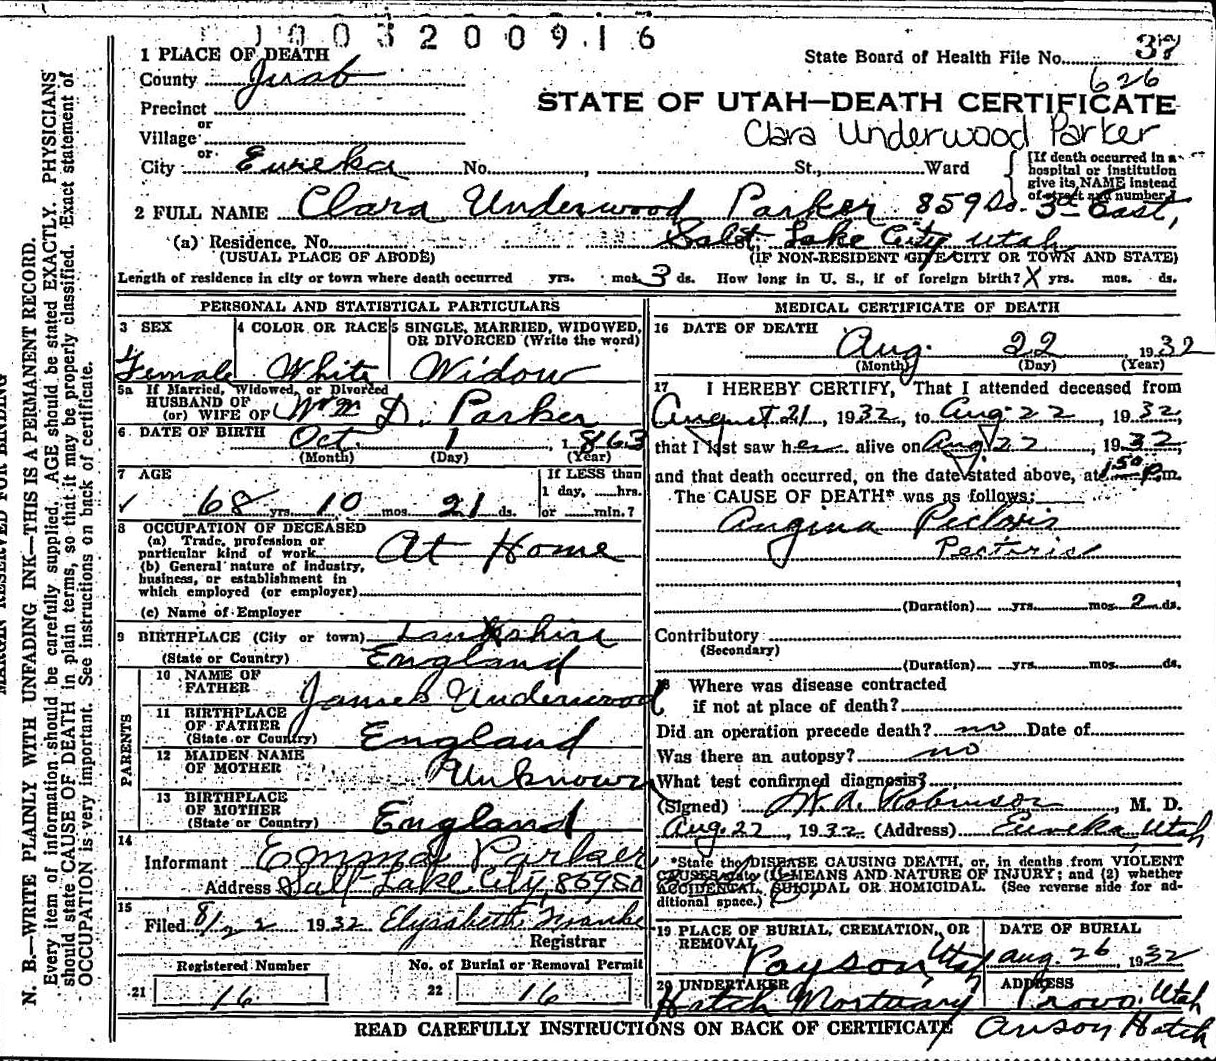 1003200916
1 PLACE OF DEATH
State Board of Health File No. 37
626
County Juab
Precinct
STATE OF UTAH—DEATH CERTIFICATE
or
Village
Clara Underwood Parker
or
City Eureka No. , St., Ward
{If death occurred in a hospital or institution give its NAME instead of street and number.}
2 FULL NAME Clara Underwood Parker 859 So. 3rd East,
(a) Residence. No. St. Salt Lake City Utah
(USUAL PLACE OF ABODE) (IF NON-RESIDENT GIVE CITY OR TOWN AND STATE)
Length of residence in city or town where death occurred yrs. mos. 3 ds. How long in U. S., if of foreign birth? X yrs. mos. ds.
PERSONAL AND STATISTICAL PARTICULARS
3 SEX
Female
4 COLOR OR RACE
White
5 SINGLE, MARRIED, WIDOWED, OR DIVORCED (Write the word)
Widow
5a If Married, Widowed, or Divorced
HUSBAND OF
(or) WIFE OF Wm D. Parker
6 DATE OF BIRTH Oct. 1, 1863
(Month) (Day) (Year)
7 AGE
68 yrs. 10 mos. 21 ds.
If LESS than
1 day, hrs.
or min.?
8 OCCUPATION OF DECEASED
(a) Trade, profession or
particular kind of work At Home
(b) General nature of industry,
business, or establishment in
which employed (or employer)
(c) Name of Employer
9 BIRTHPLACE (City or town) Lankshire
(State or Country) England
PARENTS
10 NAME OF FATHER James Underwood
11 BIRTHPLACE OF FATHER
(State or Country) England
12 MAIDEN NAME OF MOTHER Unknown
13 BIRTHPLACE OF MOTHER
(State or Country) England
14
Informant Emma Parker
Address Salt Lake City, 859 So
15
Filed 8/22 1932 Elysabeth Franke
Registrar
Registered Number
21 16
No. of Burial or Removal Permit
22 16
MEDICAL CERTIFICATE OF DEATH
16 DATE OF DEATH
Aug. 22 1932
(Month) (Day) (Year)
17 I HEREBY CERTIFY, That I attended deceased from
August 21, 1932, to Aug. 22, 1932,
that I last saw her alive on Aug 22, 1932,
and that death occurred, on the date stated above, at 1:50 P.m.
The CAUSE OF DEATH* was as follows:
Angina Pectoris
Pectoris
(Duration) yrs. mos. 2 ds.
Contributory
(Secondary)
(Duration) yrs. mos. ds.
18 Where was disease contracted
if not at place of death?
Did an operation precede death? no Date of
Was there an autopsy? no
What test confirmed diagnosis?
(Signed) Robinson, M. D.
Aug. 22, 1932 (Address) Eureka, Utah
*State the DISEASE CAUSING DEATH, or, in deaths from VIOLENT
CAUSES, state (1) MEANS AND NATURE OF INJURY; and (2) whether
ACCIDENTAL, SUICIDAL OR HOMICIDAL. (See reverse side for ad-
ditional space.)
19 PLACE OF BURIAL, CREMATION, OR REMOVAL
Payson Utah
DATE OF BURIAL
Aug. 26, 1932
20 UNDERTAKER
Hatch Mortuary
ADDRESS
Provo, Utah
Anson Hatch
READ CAREFULLY INSTRUCTIONS ON BACK OF CERTIFICATE
MARGIN RESERVED FOR BINDING
N. B.—WRITE PLAINLY WITH UNFADING INK—THIS IS A PERMANENT RECORD.
Every item of information should be carefully supplied, AGE should be stated EXACTLY. PHYSICIANS
should state CAUSE OF DEATH in plain terms, so that it may be properly classified. Exact statement of
OCCUPATION is very important. See instructions on back of certificate.